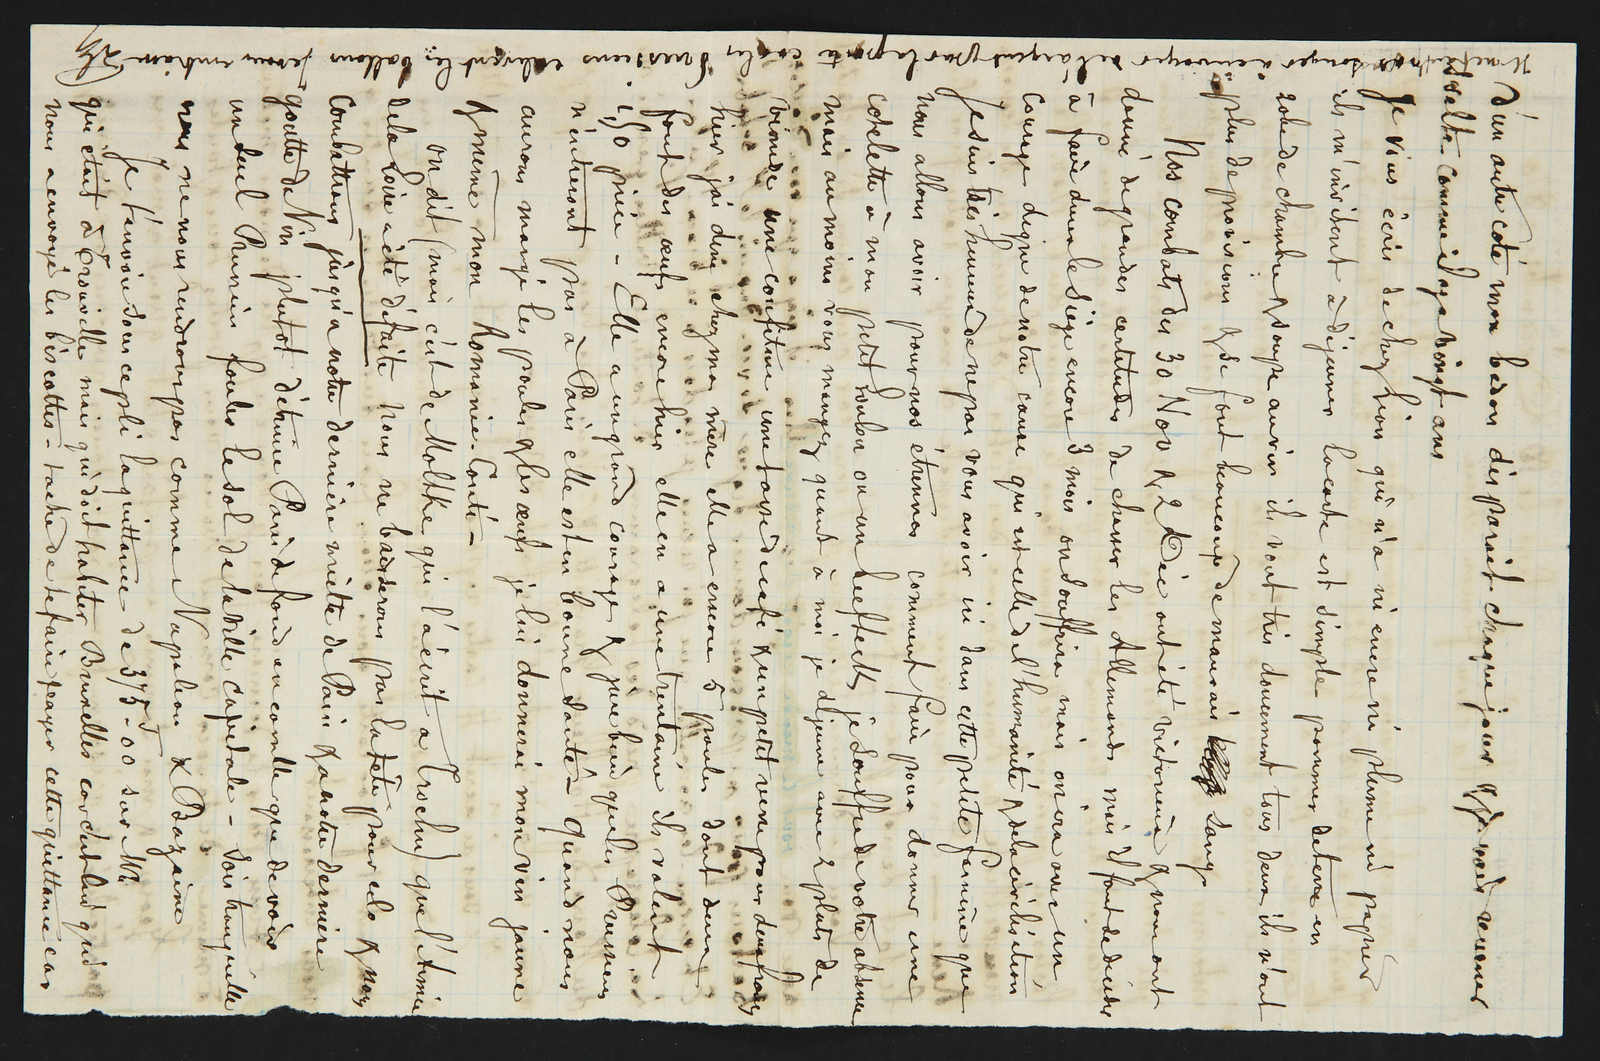 D'un autre côté mon bedon disparait chaque jour & je vais revenir
svelte comme à vingt ans
Je vous écris de chez Lion qui n'a ni encre ni plume ni papier
ils m'invitent à déjeuner la carte est simple pommes de terre en
robe de chambre & soupe au vin ils vont très doucement tous deux ils n'ont
plus de provisions & se font beaucoup de mauvais sang
Nos combats des 30 Nov & 2 Déc ont été victorieux & nous ont
donné de grandes certitudes de chasser les Allemands mais il faut se décider
à faire durer le siège encore 3 mois on souffrira mais on ira avec un
courage digne de notre cause qui est celle de l'humanité & de la civilisation
Je suis très heureux de ne pas vous avoir ici dans cette petite famine que
nous allons avoir pour nos étrennes comment faire pour donner une
cotelette à mon petit loulou ou un beefteack je souffre de votre absence
mais au moins vous mangez quant à moi je déjeune avec 2 plats de
viande une confiture une tasse de café & un petit verre pour deux francs
hier j'ai diné chez ma mère elle a encore 5 poules dont deux
font des œufs encore hier elle en a une trentaine ils valent
1,50 pièce - Elle a un grand courage & jure bien que les Prussiens
n'entreront pas à Paris elle est en bonne santé - Quand nous
aurons mangé les poules & les œufs je lui donnerai mon vin jaune
& même mon Romanie-Conti -
on dit (mais c'est de Moltke qui l'a écrit a Trochu) que l'Armée
de la Loire a été défaite nous ne baisserons pas la tête pour cela & nous
combattrons jusqu'à notre dernière miette de Pain & à notre dernière
goutte de Vin plutot détruire Paris de fond en comble que de voir
un seul Prussien fouler le sol de la Ville capitale - sois tranquille
nous ne nous rendrons pas comme Napoléon & Bazaine
Je t'envoie sous ce pli la quittance de 375-00 sur Mr
qui etait à Trouville mais qui doit habiter Bruxelles car c'est lui qui
nous a envoyé les biscottes - tache de te faire payer cette quittance car
il ne faut pas songer à envoyer de l'argent par la poste car les Prussiens
enlèvent les ballons je vous embrasse